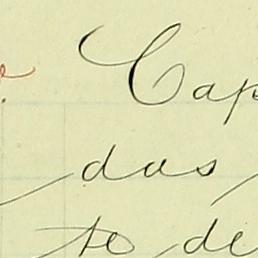 Cap
das
te de